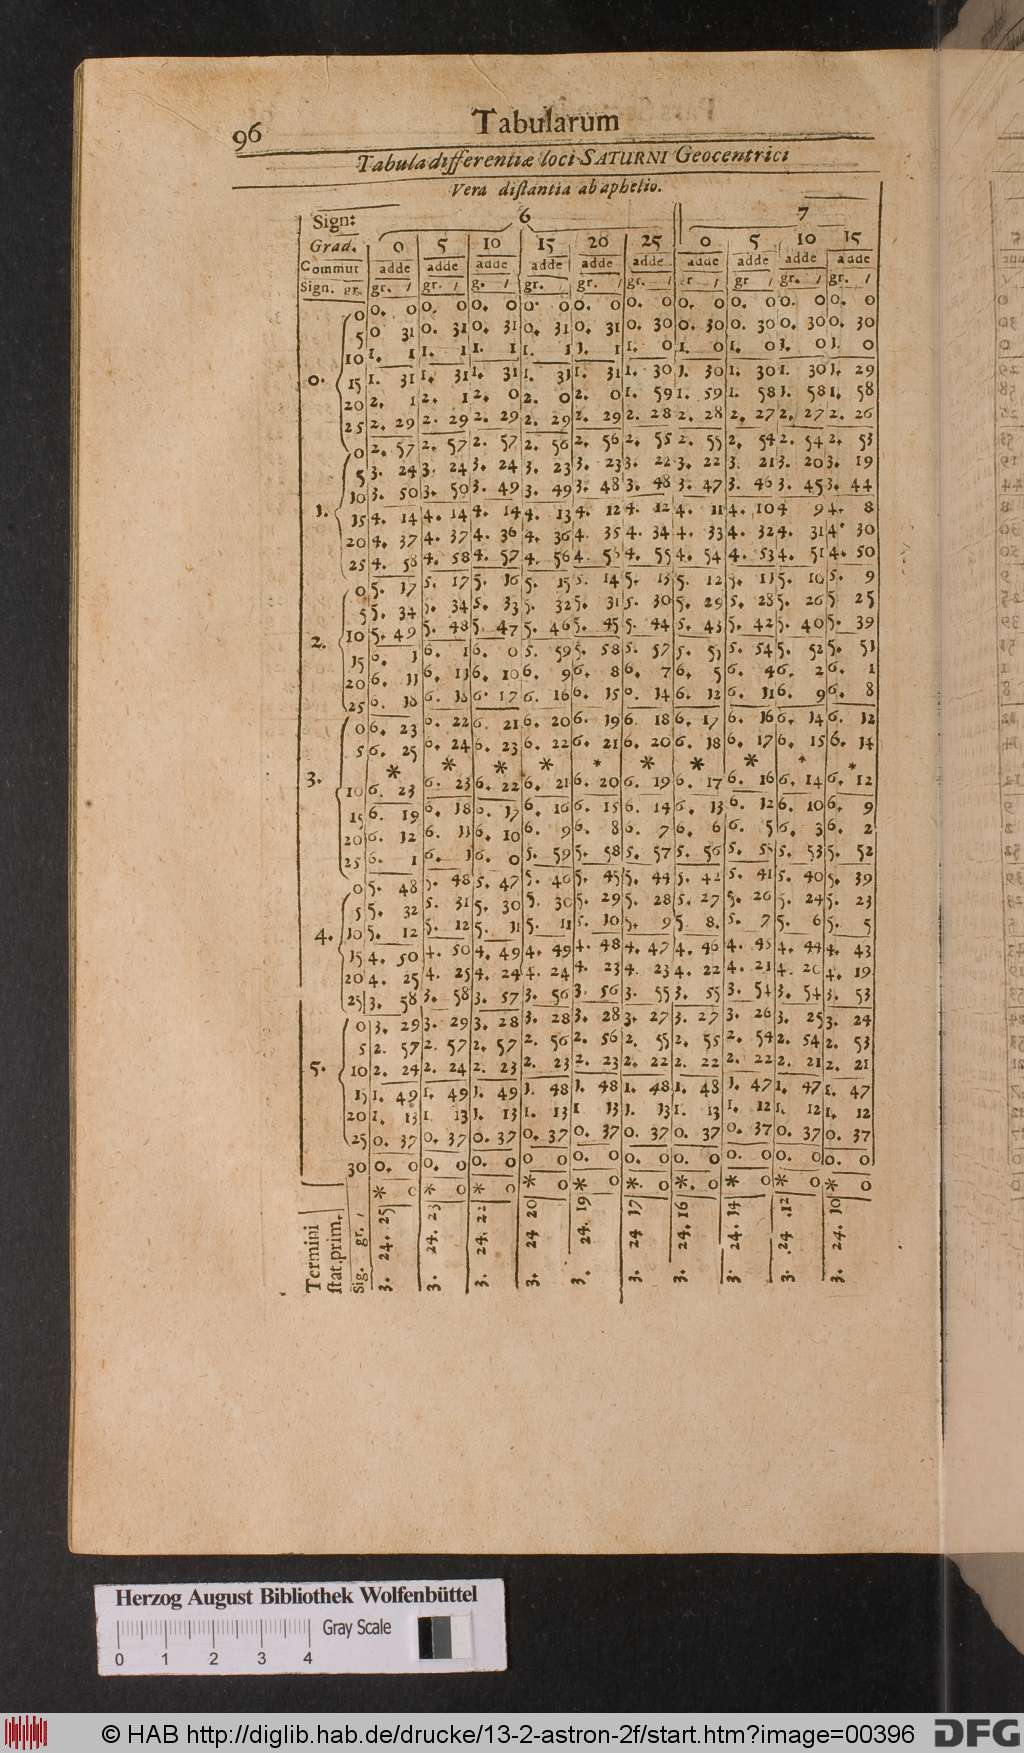 96 Tabularum
Tabula differentiæ loci SATURNI Geocentrici
Vera diſtantia ab aphelio.
Sign: 6 7
Grad. 0 5 10 15 20 25 0 5 10 15
Commut adde adde adde adde adde adde adde adde adde adde
Sign. gr. gr. ı gr. ı g. ı gr. ı gr. ı gr. ı r ı gr ı gr. ı gr. ı
0. 0 0. 0 0. 0 0. 0 0. 0 0. 0 0. 0 0. 0 0. 0 0. 0 0. 0
5 0 31 0. 31 0. 31 0. 31 0. 31 0. 30 0. 30 0. 30 0. 30 0. 30
10 1. 1 1. 1 1. 1 1. 1 1. 1 1. 0 1. 0 1. 0 1. 0 1. 0
15 1. 31 1. 31 1. 31 1. 31 1. 31 1. 30 1. 30 1. 30 1. 30 1. 29
20 2. 1 2. 1 2. 0 2. 0 2. 0 1. 59 1. 59 1. 58 1. 58 1. 58
25 2. 29 2. 29 2. 29 2. 29 2. 29 2. 28 2. 28 2. 27 2. 27 2. 26
1. 0 2. 57 2. 57 2. 57 2. 56 2. 56 2. 55 2. 55 2. 54 2. 54 2. 53
5 3. 24 3. 24 3. 24 3. 23 3. 23 3. 22 3. 22 3. 21 3. 20 3. 19
10 3. 50 3. 50 3. 49 3. 49 3. 48 3. 48 3. 47 3. 46 3. 45 3. 44
15 4. 14 4. 14 4. 14 4. 13 4. 12 4. 12 4. 11 4. 10 4 9 4. 8
20 4. 37 4. 37 4. 36 4. 36 4. 35 4. 34 4. 33 4. 32 4. 31 4. 30
25 4. 58 4. 58 4. 57 4. 56 4. 55 4. 54 4. 53 4. 51 4. 50
2. 0 5. 17 5. 17 5. 16 5. 15 5. 14 5. 13 5. 12 5. 11 5. 10 5. 9
5 5. 34 5. 34 5. 33 5. 32 5. 31 5. 30 5. 29 5. 28 5. 26 5 25
10 5. 49 5. 48 5. 47 5. 46 5. 45 5. 44 5. 43 5. 42 5. 40 5. 39
15 6. 1 6. 1 6. 0 5. 59 5. 58 5. 57 5. 5. 54 5. 52 5. 51
20 6. 11 6. 11 6. 10 6. 9 6. 8 6. 7 6. 5 6. 4 6. 2 6. 1
25 6. 18 6. 18 6. 17 6. 16 6. 15 6. 14 6. 12 6. 11 6. 9 6. 8
3. 0 6. 23 6. 22 6. 21 6. 20 6. 19 6. 18 6. 17 6. 16 6. 14 6. 12
5 6. 25 6. 24 6. 23 6. 22 6. 21 6. 20 6. 18 6. 17 6. 15 6. 14
* * * * * * * * * *
10 6. 23 6. 23 6. 22 6. 21 6. 20 6. 19 6. 17 6. 16 6. 14 6. 12
15 6. 19 6. 18 6. 17 6. 16 6. 15 6. 14 6. 13 6. 12 6. 10 6. 9
20 6. 12 6. 11 6. 10 6. 9 6. 8 6. 7 6. 6 6. 5 6. 3 6. 2
25 6. 1 6. 1 6. 0 5. 59 5. 58 5. 57 5. 56 5. 55 5. 53 5. 52
4. 0 5. 48 5. 48 5. 47 5. 46 5. 45 5. 44 5. 42 5. 41 5. 40 5. 39
5 5. 32 5. 31 5. 30 5. 30 5. 29 5. 28 5. 27 5. 26 5. 24 5. 23
10 5. 12 5. 12 5. 11 5. 11 5. 10 5. 9 5. 8. 5. 7 5. 6 5. 5
15 4. 50 4. 50 4. 49 4. 49 4. 48 4. 47 4. 46 4. 45 4. 44 4. 43
20 4. 25 4. 25 4. 24 4. 24 4. 23 4. 23 4. 22 4. 21 4. 20 4. 19
25 3. 58 3. 58 3. 57 3. 56 3. 56 3. 55 3. 55 3. 54 3. 54 3. 53
5. 0 3. 29 3. 29 3. 28 3. 28 3. 28 3. 27 3. 27 3. 26 3. 25 3. 24
5 2. 57 2. 57 2. 57 2. 56 2. 56 2. 55 2. 55 2. 54 2. 54 2. 53
10 2. 24 2. 24 2. 23 2. 23 2. 23 2. 22 2. 22 2. 22 2. 21 2. 21
15 1. 49 1. 49 1. 49 1. 48 1. 48 1. 48 1. 48 1. 47 1. 47 1. 47
20 1. 13 1. 13 1. 13 1. 13 1 13 1. 13 1. 13 1. 12 1. 12 1. 12
25 0. 37 0. 37 0. 37 0. 37 0. 37 0. 37 0. 37 0. 37 0. 37 0. 37
30 0. 0 0. 0 0. 0 0 0 0. 0 0. 0 0. 0 0. 0 0. 0 0. 0
* 0 * 0 * 0 * 0 * 0 * 0 *. 0 * 0 * 0 * 0
Termini
ſtat.prim.
Sig. gr. ı
3. 24. 25
3. 24. 23
3. 24. 22
3. 24 20
3. 24. 19
3. 24 17
3. 24. 16
3. 24. 14
3. 24 .12
3. 24. 10
Herzog August Bibliothek Wolfenbüttel
Gray Scale
0 1 2 3 4
© HAB http://diglib.hab.de/drucke/13-2-astron-2f/start.htm?image=00396 DFG